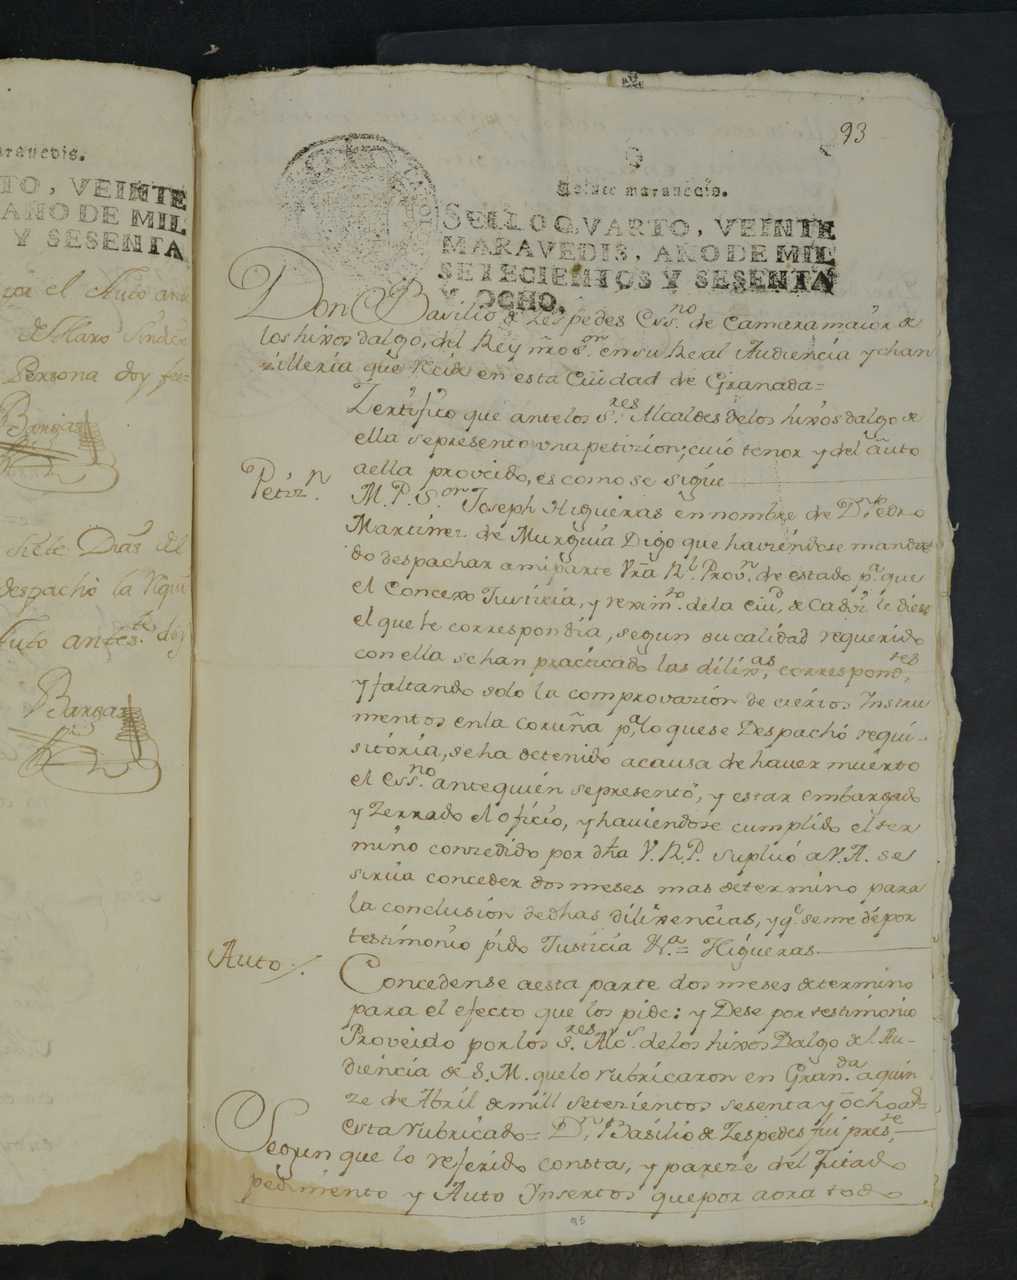 aravedis.
TO, VEINTE
AÑO DE MIL
Y SESENTA
el Auto ante
Persona doy fee=
Bargas
siete Dias del
despachò la
Auto antes.te doy
Bargas
93
Veinte maravedis.
SELLO QVARTO, VEINTE
MARAVEDIS, AÑO DE MIL
SETECIENTOS Y SESENTA
Y OCHO.
Don Basilio de Zespedes Ess.no de Camara maior de
los hixos dalgo, del Rey nro S.or en su Real Audiencia y chan
zilleria que recide en esta Ciudad de Granada=
Zertifico que ante los S.res Alcaldes de los hixos dalgo de
ella se presento vna petizion, cuio tenor y del auto
a ella proveido, es como se sigue
Petiz.n
M. P. S.or Joseph Higueras en nombre de D.n Pedro
Martinez de Murguia Digo que haviendose manda
do despachar a mi parte Vra R.l Prov.n de estado p.a que
el Concexo Justicia, y rexim.to de la Ciu.d de Cadiz le diese
el que le correspondia, segun su calidad requerido
con ella se han practicado las dilix.as correspond.tes
y faltando solo la comprovazion de ciertos Instru
mentos en la Coruña p.a lo que se Despachó requi-
sitoria, se ha detenido a causa de haver muerto
el Ess.no ante quien se presentó, y estar embargado
y zerrado el oficio, y haviendose cumplido el ter
mino conzedido por dha V. R. P. suplico a V. A. se
sirva conceder dos meses mas de termino para
la conclusion de dhas dilixencias, y q.e se me dé por
testimonio pido Justicia &.a = Higueras
Auto /.
Concedense a esta parte dos meses de termino
para el efecto que los pide: y Dese por testimonio
Proveido por los S.res Alc.s de los hixos Dalgo de l. Au-
diencia de S. M. que lo rubricaron en Gran.da a quin
ze de Abril de mill setezientos sesenta y ocho a.s=
esta rubricado= D.n Basilio de Zespedes fui pres.te
Segun que lo referido consta, y pareze del zitado
pedimento y Auto Ynsertos que por aora todo
95